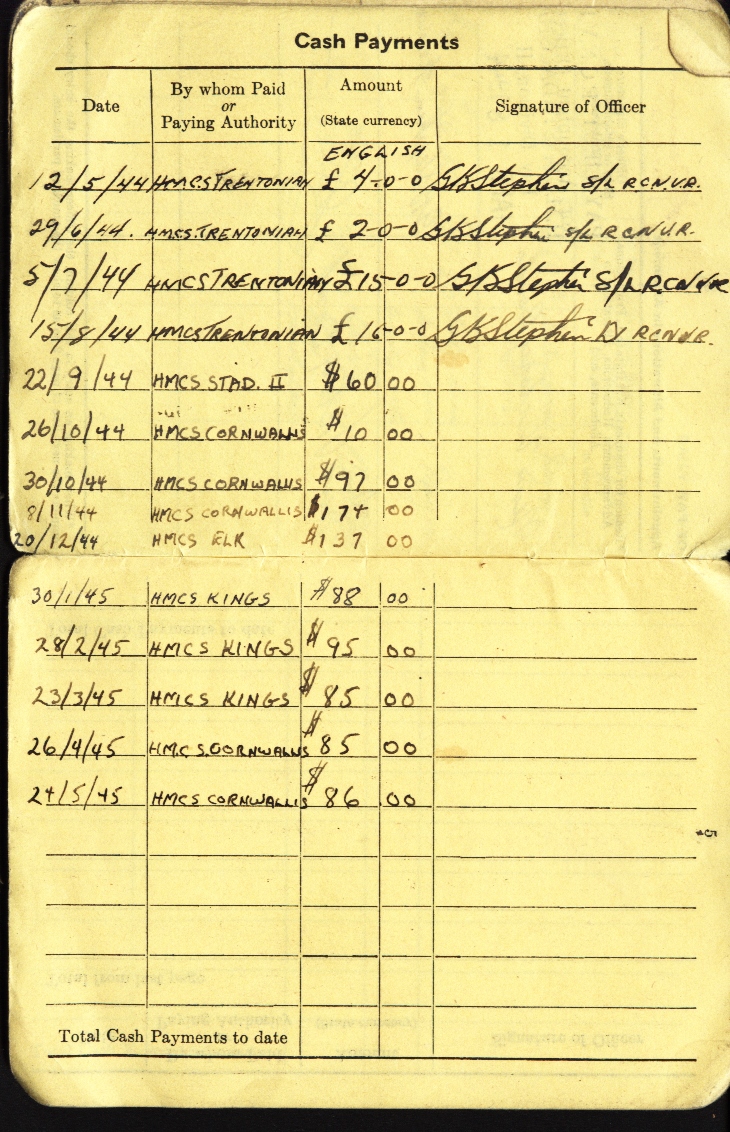 Cash Payments
Date By whom Paid or Paying Authority Amount (State currency) Signature of Officer
ENGLISH
12/5/44 HMCS TRENTONIAN £ 4-0-0 GKStephen S/L R.C.N.V.R.
29/6/44. HMCS. TRENTONIAN £ 2-0-0 GKStephen S/L RCNV.R.
5/7/44 HMCS TRENTONIAN £15-0-0 GKStephen S/L R.C.N.V.R
15/8/44 HMCS TRENTONIAN £ 16-0-0 GKStephen RCNVR.
22/9/44 HMCS STAD. II $60 00
26/10/44 HMCS CORNWALLIS $10 00
30/10/44 HMCS CORNWALLIS $97 00
8/11/44 HMCS CORNWALLIS $174 00
20/12/44 HMCS ELK $137 00
30/1/45 HMCS KINGS $88 00
28/2/45 HMCS KINGS $95 00
23/3/45 HMCS KINGS $85 00
26/4/45 H.M.C.S. CORNWALLIS $85 00
24/5/45 HMCS CORNWALLIS $86 00
Total Cash Payments to date